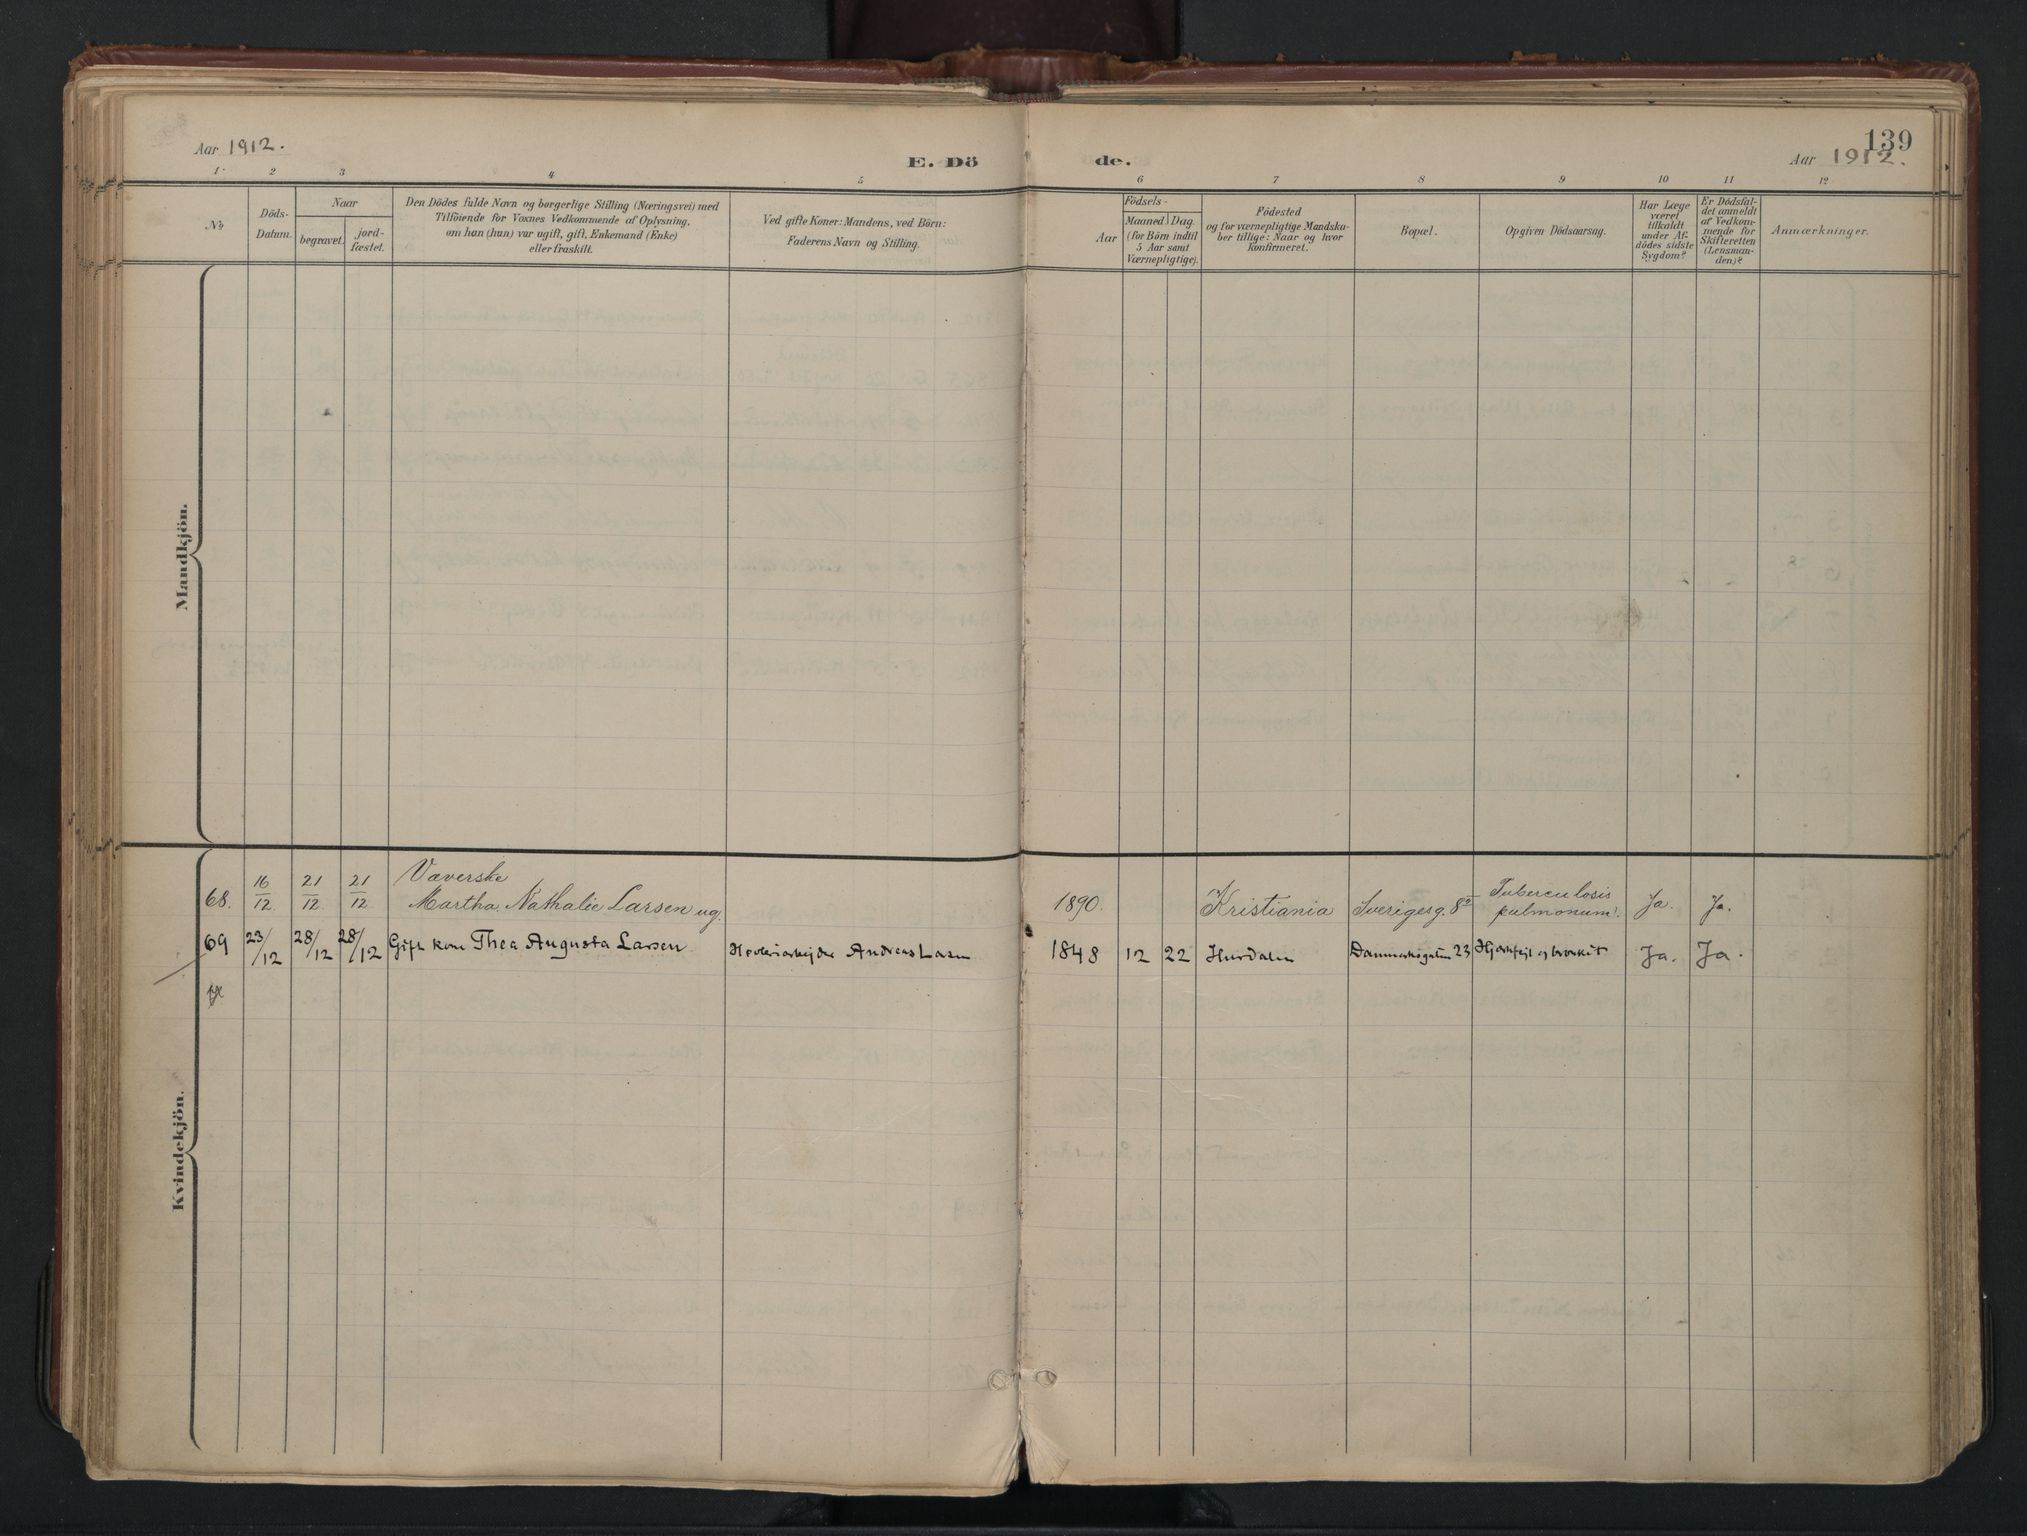 139
Aar 1912.
E. Dö de.
Aar 1912.
1 2 3 4 5 6 7 8 9 10 11 12
No
Döds-
Datum.
Naar
begravet.
jord-
fæstet.
Den Dödes fulde Navn og borgerlige Stilling (Næringsvei) med
Tilföiende for Voxnes Vedkommende af Oplysning,
om han (hun) var ugift, gift, Enkemand (Enke)
eller fraskilt.
Ved gifte Koner: Mandens, ved Börn:
Faderens Navn og Stilling.
Födsels-
Aar
Maaned
Dag
(for Börn indtil
5 Aar samt
Værnepligtige).
Födested
og for værnepligtige Mandska-
ber tillige: Naar og hvor
konfirmeret.
Bopæl.
Opgiven Dödsaarsag.
Har Læge
været
tilkaldt
under Af-
dödes sidste
Sygdom?
Er Dödsfal-
det anmeldt
af Vedkom-
mende for
Skifteretten
(Lensman-
den)?
Anmærkninger.
Mandkjön.
Kvindekjön.
Væverske
68. 16/12 21/12 21/12 Martha Nathalie Larsen ug. 1890. Kristiania Sverigesg. 8 II Tuberculosis
pulmonum. Ja. Ja.
69 23/12 28/12 28/12 Gift kone Thea Augusta Larsen Andreas Larsen 1848 12 22 Hurdalen Danmarksgaten 23 Hjertefeil og bronkit Ja. Ja.